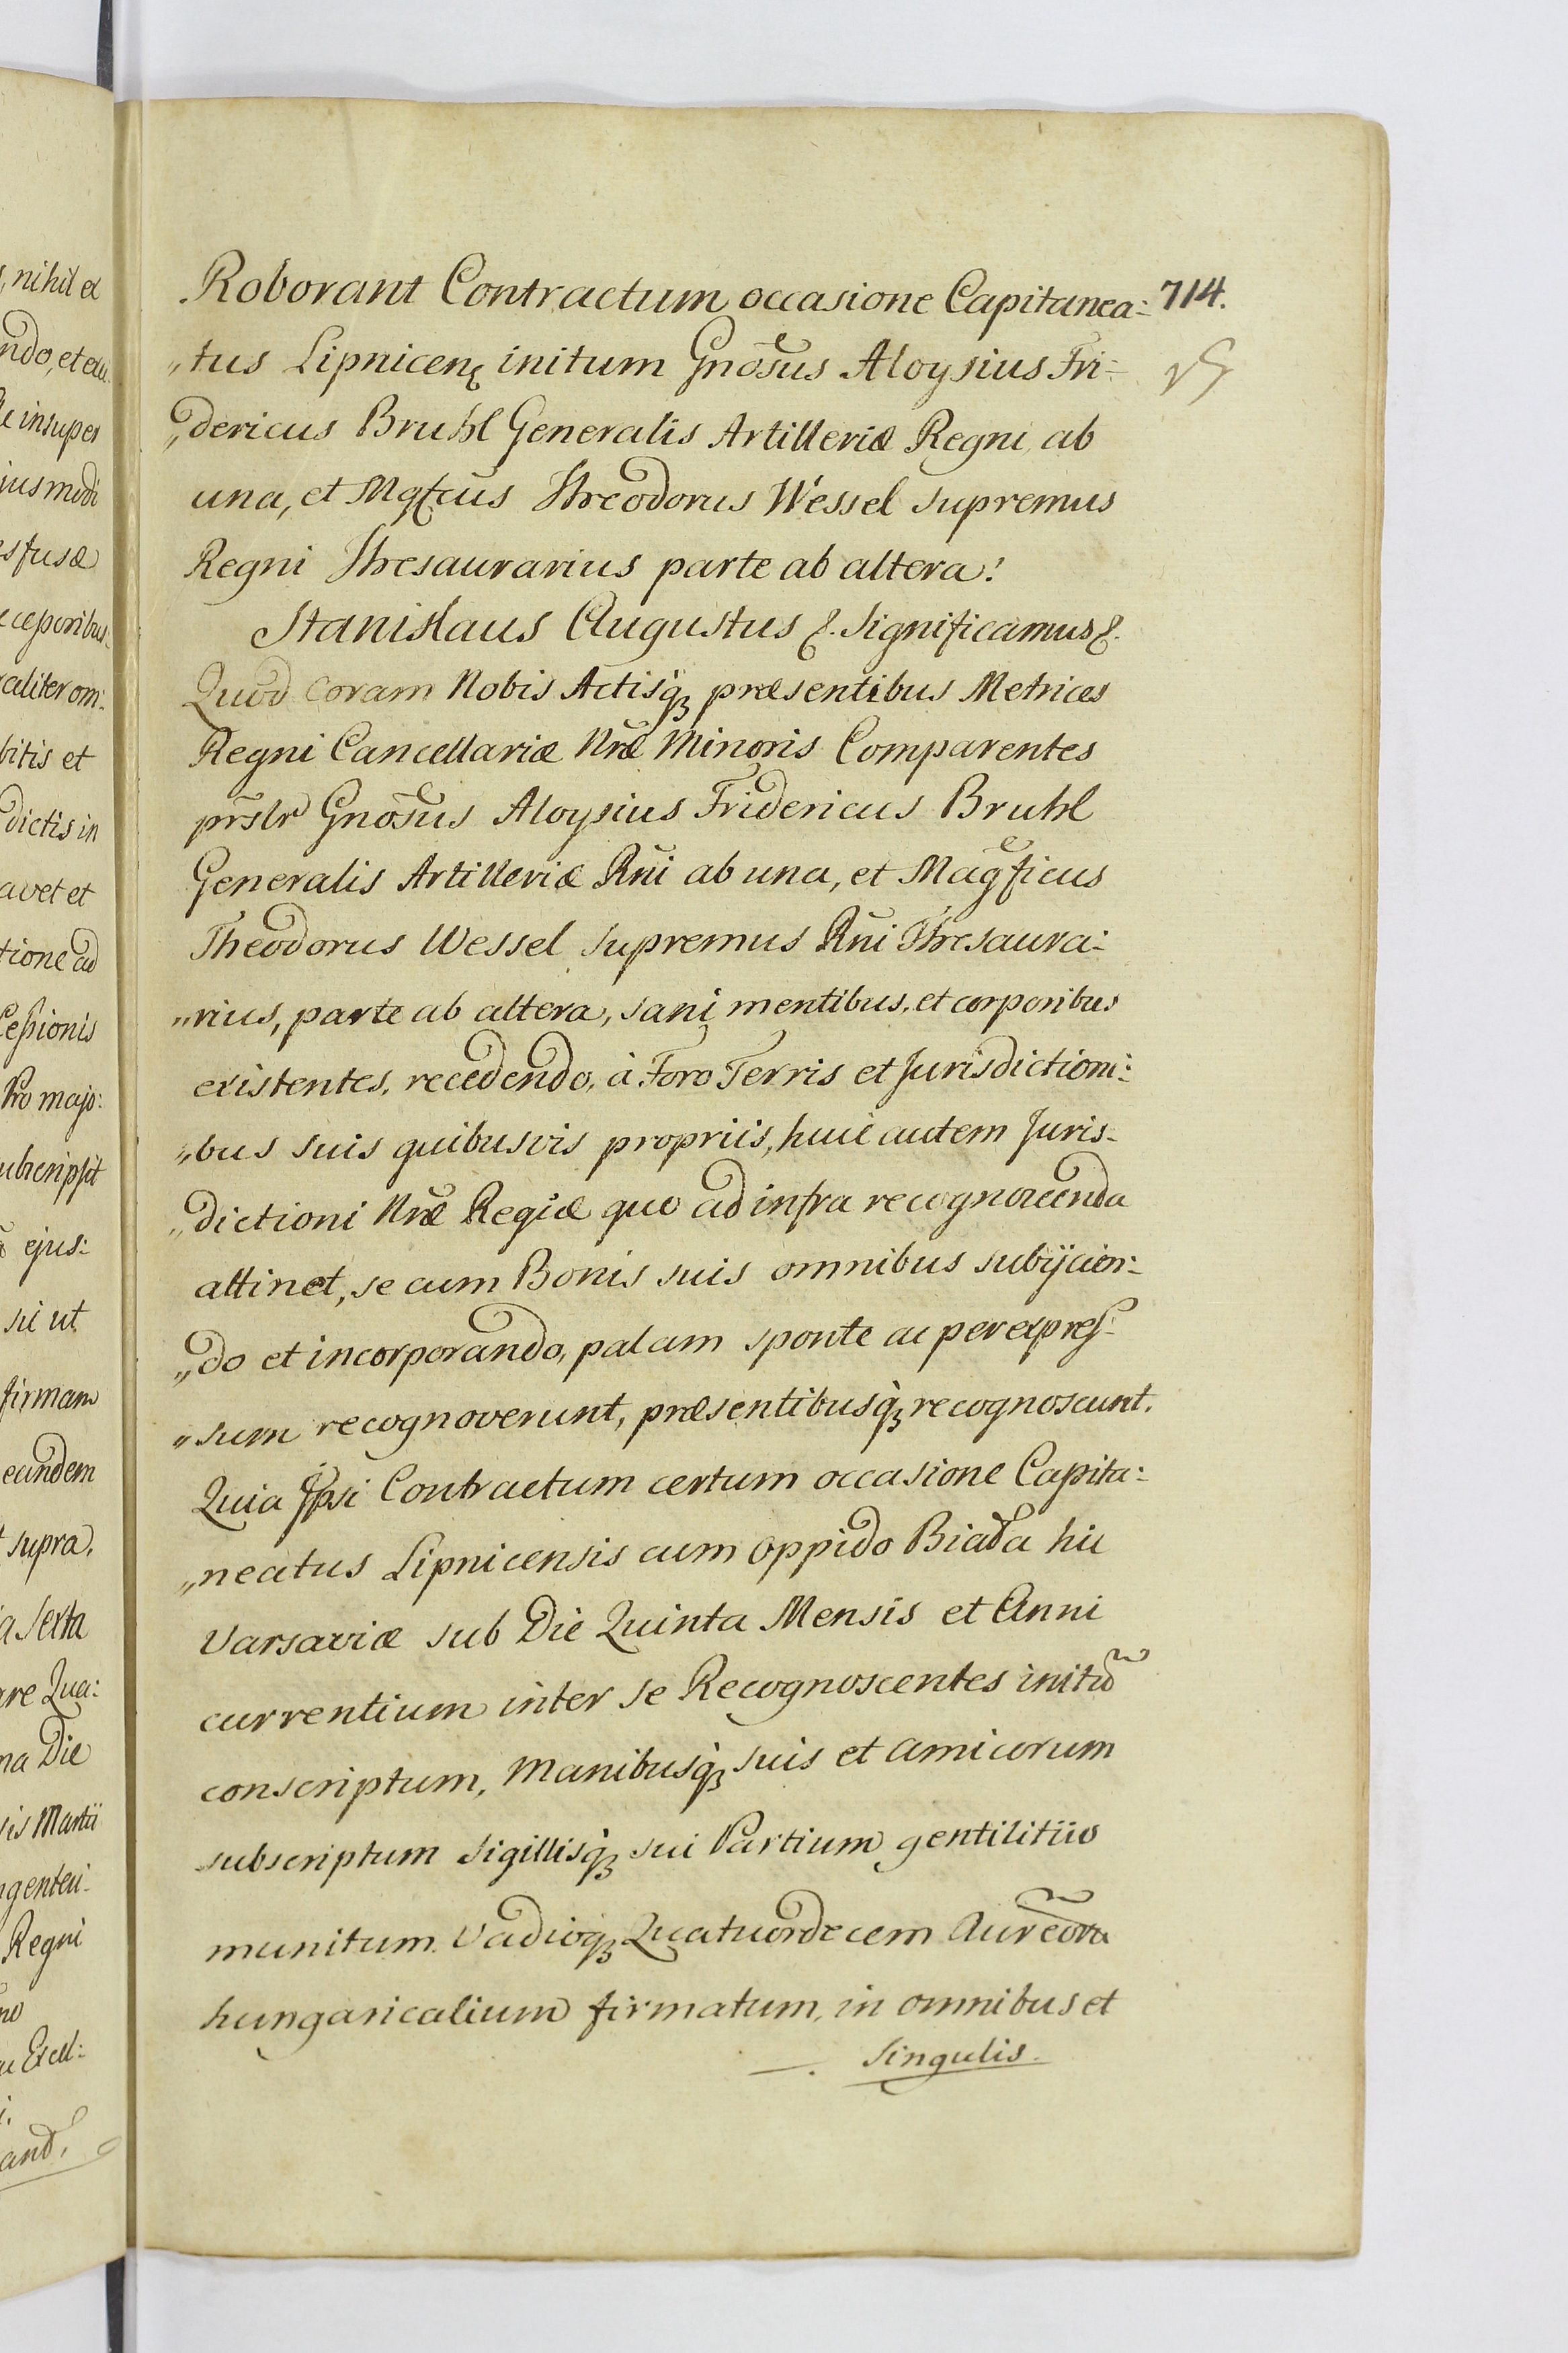 Roborant Contractum occasione Capitanea: 714.
„tus Lipnicen̄ initum Gnōsus Aloysius Fri:
„dericus Bruhl Generalis Artilleriæ Regni ab
una, et Mgfcūs Threodorus Wessel supremus
Regni Thresaurarius parte ab altera:
Stanislaus Augustus &. Significamus &.
Quod coram Nobis Actisq̀ꝫ præsentibus Metrices
Regni Cancellariæ Nræ Minoris Comparentes
prslr Gnōsus Aloysius Fridericus Bruhl
Generalis Artilleriæ Rni ab una, et Magficus
Theodorus Wessel supremus Rni Thresaura:
„rius, parte ab altera, sani mentibus, et corporibus
existentes, recedendo, à Foro Terris et Jurisdictioni:
„bus suis quibusvis propriis, huic autem Juris-
„dictioni Nræ Regiæ quo ad infra recognoscenda
attinet, se cum Bonis suis omnibus subijcien:
„do et incorporando, palam sponte ac per expres-
„sum recognoverunt, præsentibusq̀ꝫ recognoscunt.
Quia Ipsi Contractum certum occasione Capita:
„neatus Lipnicensis cum oppido Biała hic
Varsaviæ sub Die Quinta Mensis et Anni
currentium inter se Recognoscentes initū
conscriptum, Manibusq̀ꝫ suis et amicorum
subscriptum Sigillisq̀ꝫ sui Partium gentilitiis
munitum. Vadioqꝫ Quatuordecem Aureōrū
hungaricalium firmatum, in omnibus et
singulis.
nihil et
ndo, et
insuper
iusmodi
fusæ
aliter om:
bitis et
dictis in
avet et
tione ad
Cessionis
Pro majo:
ubscripsit
ejus:
sii ut
firmam
eandem
supra.
a sexta
re Qua:
na Die
sis Martii
ngentesi-
Regni
no
Excell:
and.